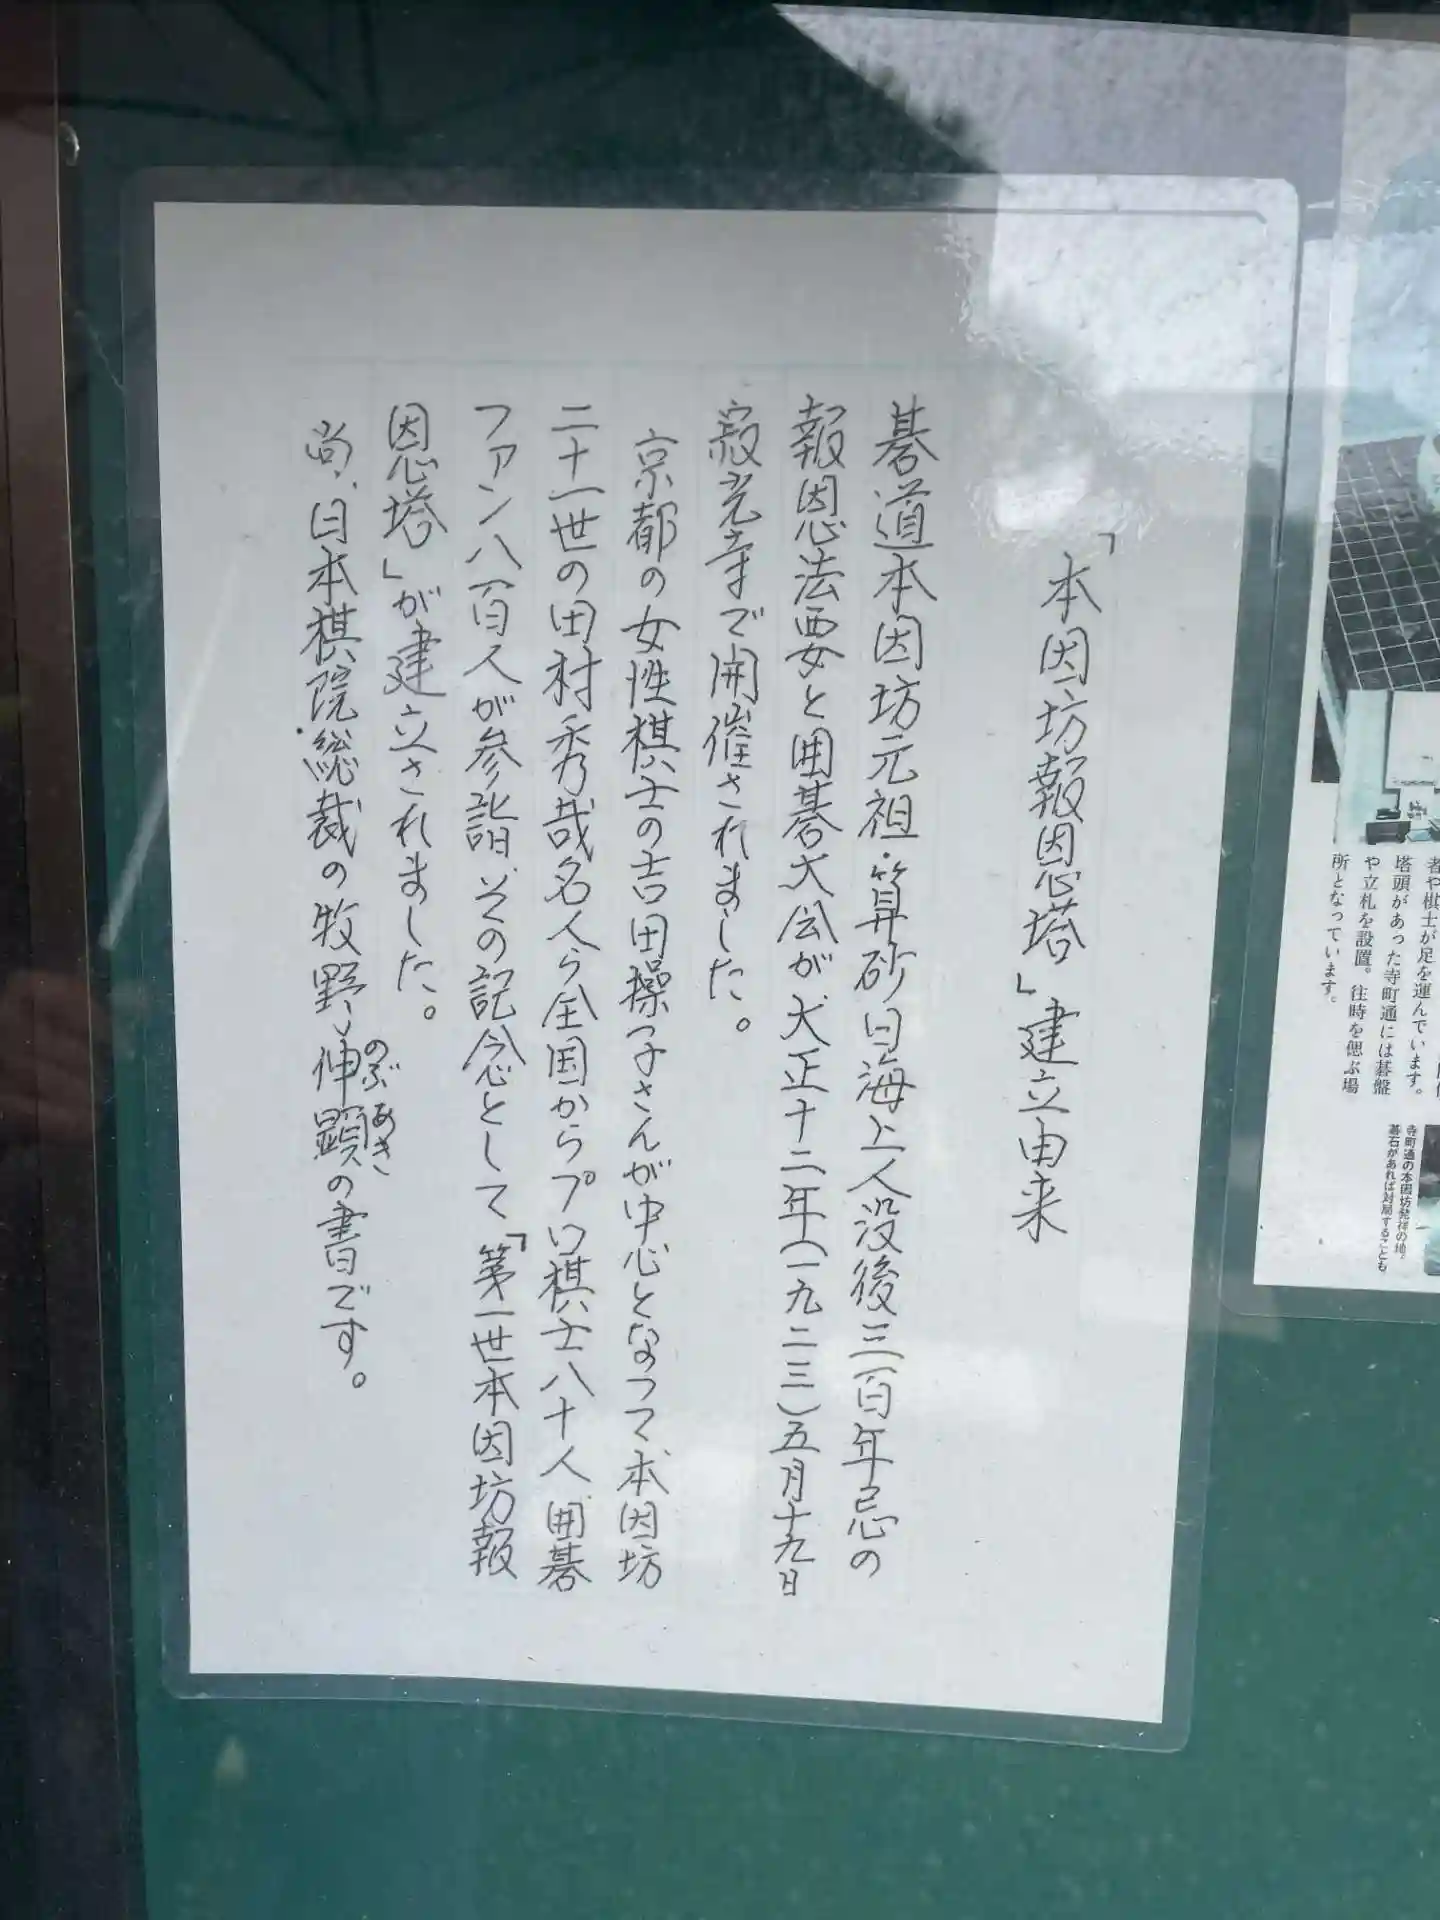 「本因坊報恩塔」建立由来
碁道本因坊元祖・算砂日海上人没後三百年忌の
報恩法要と囲碁大会が大正十二年(一九二三)五月十九日
寂光寺で開催されました。
京都の女性棋士の吉田操子さんが中心となって本因坊
二十一世の田村秀哉名人ら全国からプロ棋士八十人、囲碁
ファン八百人が参詣、その記念として「第一世本因坊報
恩塔」が建立されました。
尚、日本棋院総裁の牧野伸顕の書です。
のぶあき
者や棋士が足を運んでいます。
塔頭があった寺町通には碁盤
や立札を設置。往時を偲ぶ場
所となっています。
寺町通の本因坊発祥の地。
碁石があれば対局することも